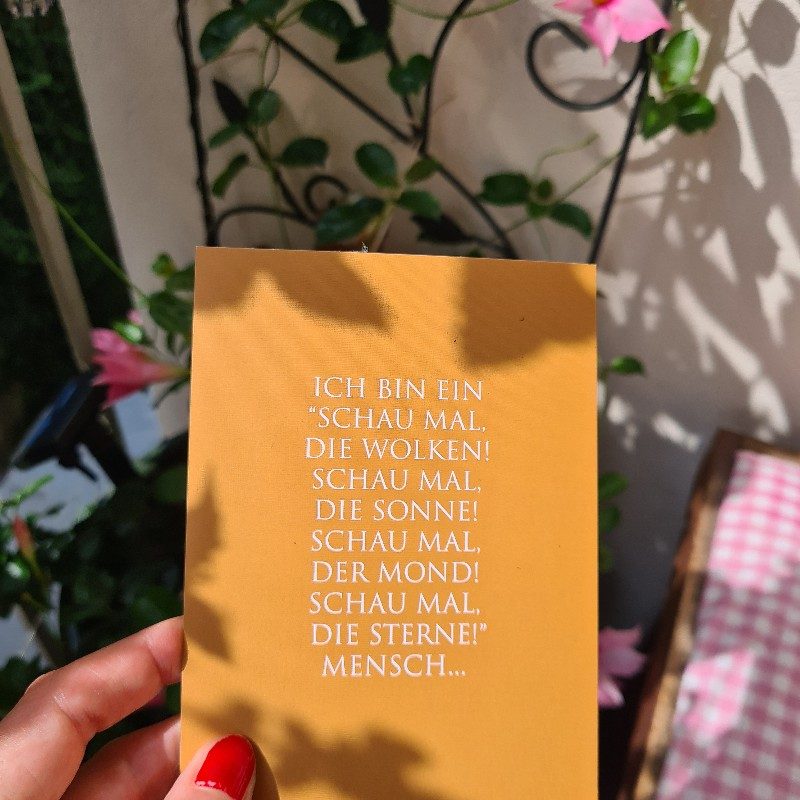 ICH BIN EIN
“SCHAU MAL,
DIE WOLKEN!
SCHAU MAL,
DIE SONNE!
SCHAU MAL,
DER MOND!
SCHAU MAL,
DIE STERNE!”
MENSCH...